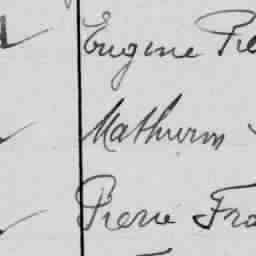 Eugene Pie
Mathurin
Pierre Fra